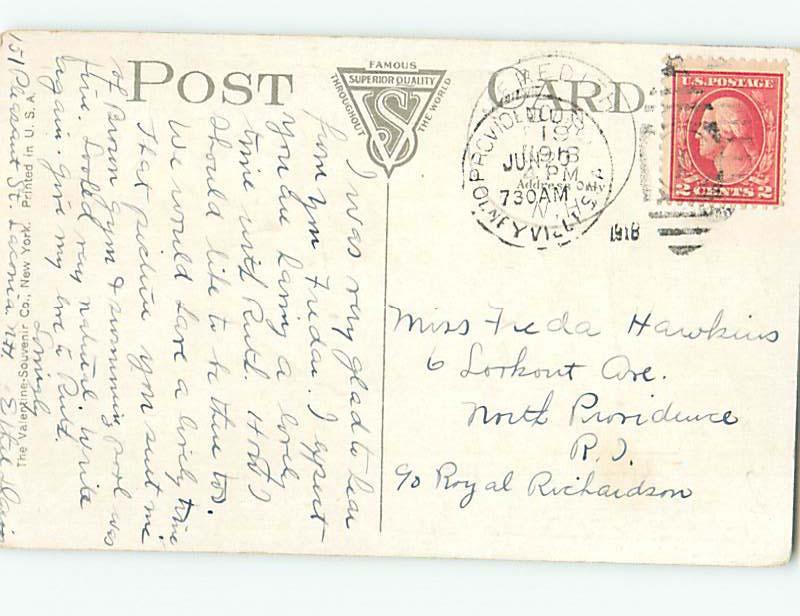 POST CARD
FAMOUS
SUPERIOR QUALITY
THROUGHOUT
THE WORLD
VS
U.S. POSTAGE
2 CENTS 2
PROVIDENCE
JUN 20
730 AM
OLNEYVILLE STA
1918
1918
PM
Address Only
I was very glad to hear
from you Freda. I expect
you are having a lovely
time with Ruth. How I
should like to be there too.
We would have a lovely time
That picture you sent me
of Brown gym & swimming pool was
fine. Looked very natural. Write
again. Give my love to Ruth.
Lovingly
Ethel Davis
151 Pleasant St. Laconia N.H.
The Valentine-Souvenir Co., New York. Printed in U. S. A.
Miss Freda Hawkins
6 Lookout Ave.
North Providence
R.I.
c/o Royal Richardson